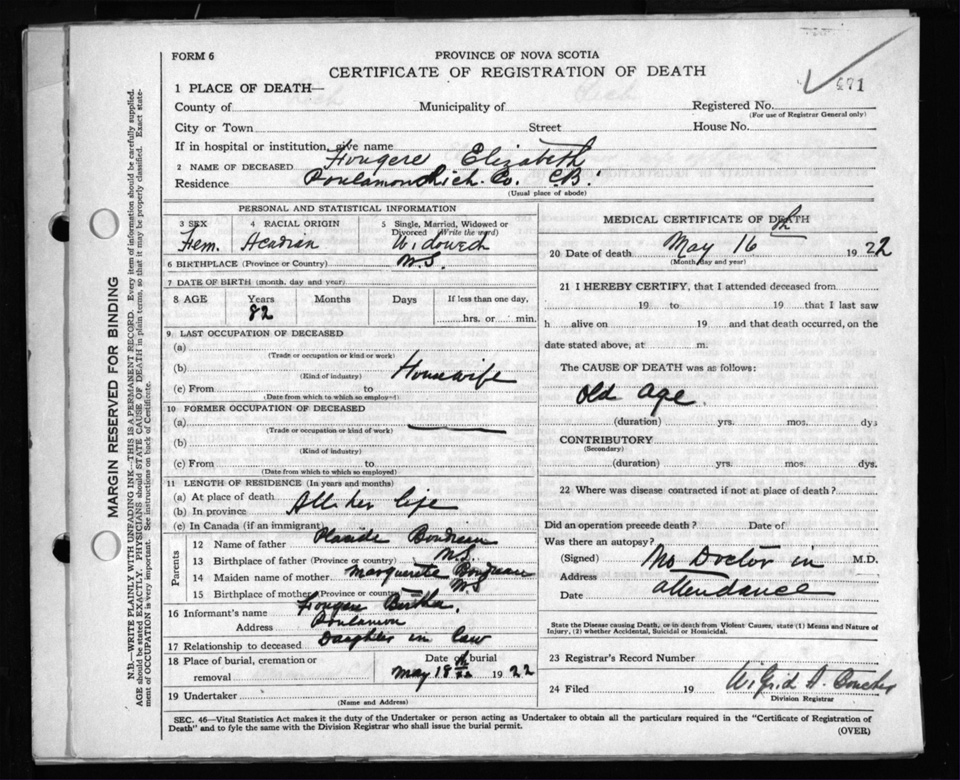 FORM 6
PROVINCE OF NOVA SCOTIA
CERTIFICATE OF REGISTRATION OF DEATH
671
1 PLACE OF DEATH—
County of Municipality of Registered No.
(For use of Registrar General only)
City or Town Street House No.
If in hospital or institution, give name
2 NAME OF DECEASED Fougere Elizabeth
Residence Poulamond Rich. Co. C.B.
(Usual place of abode)
PERSONAL AND STATISTICAL INFORMATION
3 SEX 4 RACIAL ORIGIN 5 Single, Married, Widowed or Divorced (Write the word)
Fem. Acadian Widowed
6 BIRTHPLACE (Province or Country) N.S.
7 DATE OF BIRTH (month, day and year)
8 AGE Years Months Days If less than one day,
82 hrs. or min.
9 LAST OCCUPATION OF DECEASED
(a)
(Trade or occupation or kind or work)
(b) Housewife
(Kind of industry)
(c) From to
(Date from which to which so employed)
10 FORMER OCCUPATION OF DECEASED
(a)
(Trade or occupation or kind of work)
(b)
(Kind of industry)
(c) From to
(Date from which to which so employed)
11 LENGTH OF RESIDENCE (In years and months)
(a) At place of death All her life
(b) In province
(c) In Canada (if an immigrant)
Parents
12 Name of father Placide Boudreau
13 Birthplace of father (Province or country) N.S.
14 Maiden name of mother Marguerite Boudreau
15 Birthplace of mother (Province or country) N.S
16 Informant's name Fougere Bertha.
Address Poulamon
17 Relationship to deceased Daughter in law
18 Place of burial, cremation or removal Date of burial
May 18th 1922
19 Undertaker
(Name and Address)
MEDICAL CERTIFICATE OF DEATH
20 Date of death May 16th 1922
(Month, day and year)
21 I HEREBY CERTIFY, that I attended deceased from
19 to 19 that I last saw
h alive on 19 and that death occurred, on the
date stated above, at m.
The CAUSE OF DEATH was as follows:
Old Age
(duration) yrs. mos. dys
CONTRIBUTORY
(Secondary)
(duration) yrs. mos. dys.
22 Where was disease contracted if not at place of death?
Did an operation precede death? Date of
Was there an autopsy?
(Signed) No Doctor in M.D.
Address attendance
Date
State the Disease causing Death, or in death from Violent Causes, state (1) Means and Nature of
Injury, (2) whether Accidental, Suicidal or Homicidal.
23 Registrar's Record Number
24 Filed 19 Wilfrid A.
Division Registrar
SEC. 46—Vital Statistics Act makes it the duty of the Undertaker or person acting as Undertaker to obtain all the particulars required in the "Certificate of Registration of
Death" and to fyle the same with the Division Registrar who shall issue the burial permit.
(OVER)
MARGIN RESERVED FOR BINDING
N.B.—WRITE PLAINLY WITH UNFADING INK—THIS IS A PERMANENT RECORD. Every item of information should be carefully supplied.
AGE should be stated EXACTLY. PHYSICIANS should STATE CAUSE OF DEATH in plain terms, so that it may be properly classified. Exact state-
ment of OCCUPATION is very important. See instructions on back of Certificate.